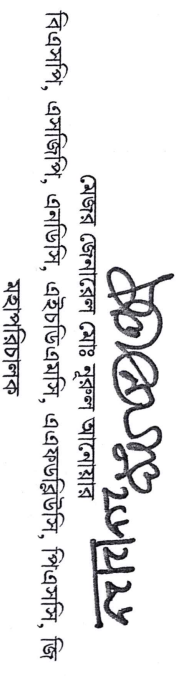 মেজর জেনারেল মোঃ নুরুল আনোয়ার
বিএসপি, এসজিপি, এনডিসি, এইচডিএমসি, এএফডব্লিউসি, পিএসসি, জি
মহাপরিচালক